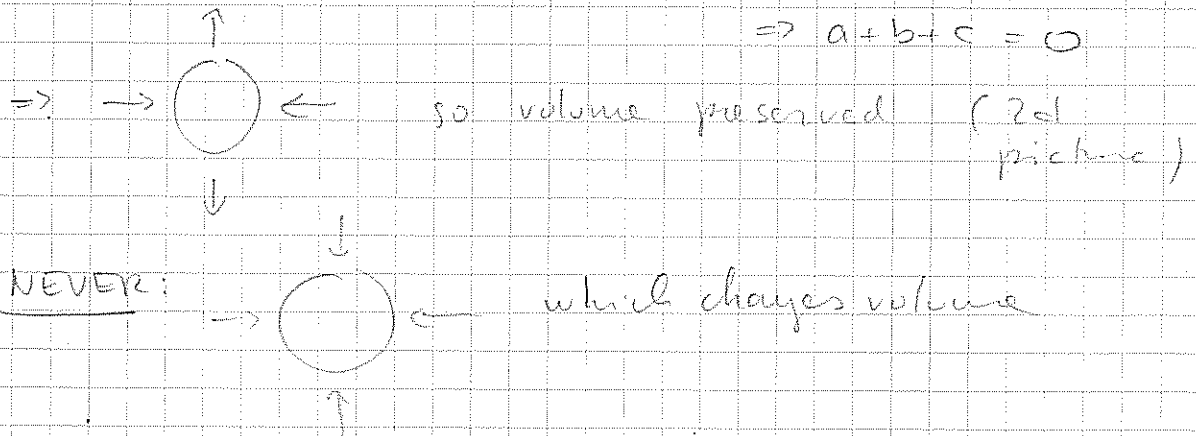 => a + b + c = 0
=> so volume preserved (2d
picture)
NEVER:
which changes volume